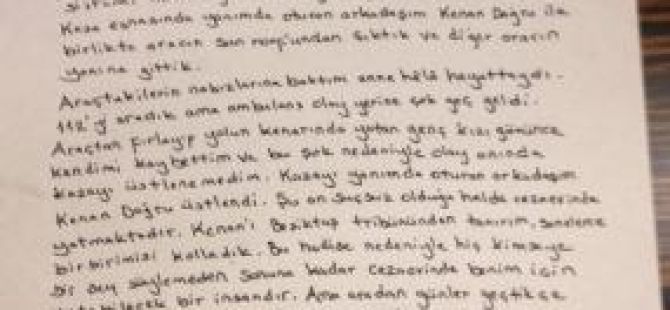 Kaza esnasında yanımda oturan arkadaşım Kenan Doğru ile
birlikte aracın sun roof'undan çıktık ve diğer aracın
yanına gittik.
Araçtakilerin nabızlarına baktım anne hâlâ hayattaydı.
112'yi aradık ama ambulans olay yerine çok geç geldi.
Araçtan fırlayıp yolun kenarında yatan genç kızı görünce
kendimi kaybettim ve bu şok nedeniyle olay anında
kazayı üstlenemedim. Kazayı yanımda oturan arkadaşım
Kenan Doğru üstlendi. Şu an suçsuz olduğu halde cezaevinde
yatmaktadır. Kenan'ı Beşiktaş tribününden tanırım, senelerce
birbirimizi kolladık. Bu hadise nedeniyle hiç kimseye
bir şey söylemeden sonuna kadar cezaevinde benim için
bir insandır. Ama aradan günler geçtikçe